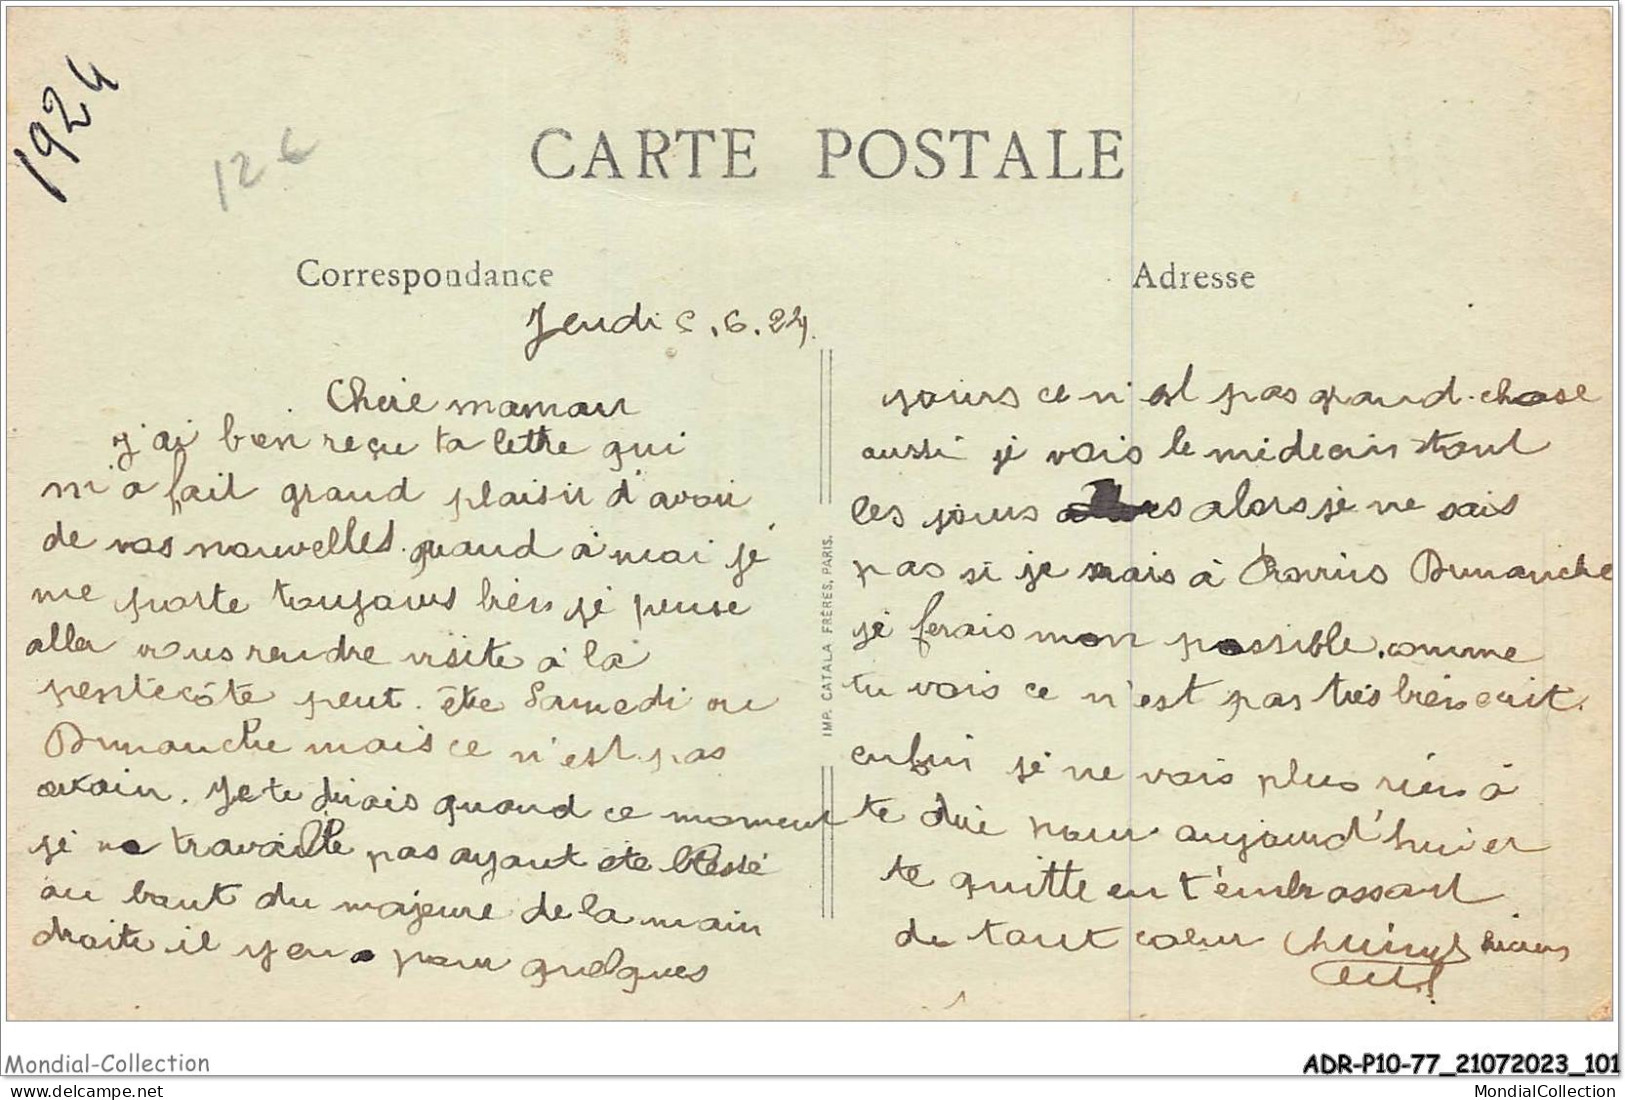 1924
126
CARTE POSTALE
Correspondance
Adresse
Jeudi 5.6.24.
Cherie maman
J'ai bien reçu ta lettre qui
m'a fait grand plaisir d'avoir
de vos nouvelles. quand à moi je
me porte toujours bien je pense
aller vous rendre visite à la
pentecôte peut-être Samedi ou
Dimanche mais ce n'est pas
Je te dirais quand ce moment
je ne travaille pas ayant ete blessé
au bout du majeure de la main
droite il y en a pour quelques
IMP. CATALA FRÈRES, PARIS.
jours ce n'est pas grand-chose
aussi je vois le médecin tout
les jours alors je ne sais
pas si je irais à Dimanche
je ferais mon possible. comme
tu vois ce n'est pas très bien ecrit.
enfin je ne vois plus rien à
te dire pour aujourd'hui et
te quitte en t'embrassant
de tout coeur Lucien
Mondial-Collection
ADR-P10-77_21072023_101
www.delcampe.net
MondialCollection